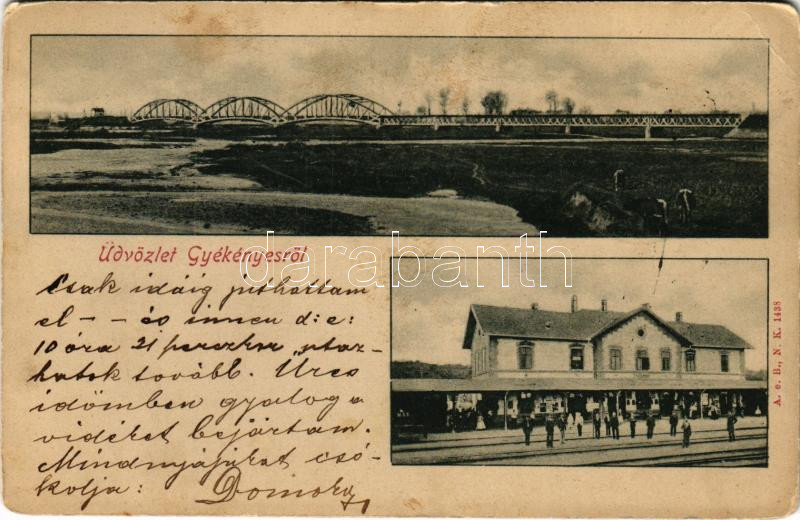 Üdvözlet Gyékényesről
darabanth
Csak idáig juthattam
el - - és innen d: e:
10 óra 21 perczkor utaz-
hatok tovább. Üres
időmben gyalog a
vidéket bejártam.
Mindnyájukat csó-
kolja:
A. e B., N. K. 1438